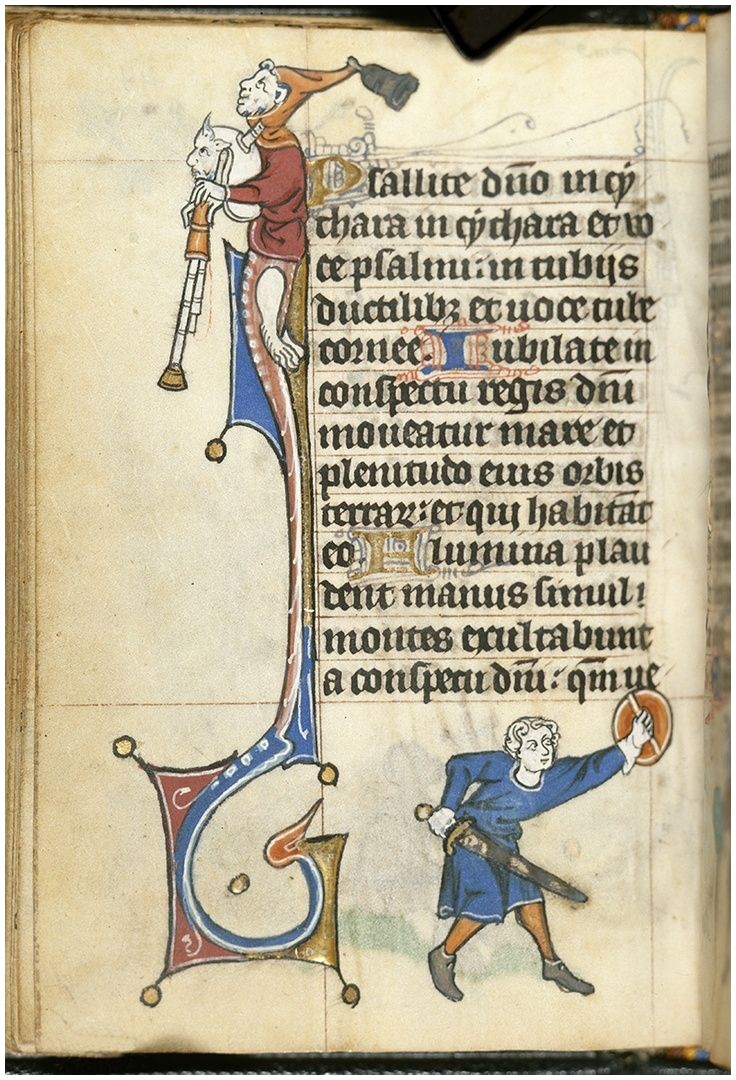 Psallite dño in cy
thara in cythara et vo
ce psalmi: in tubijs
ductilibꝫ et uoce tube
cornee. Iubilate in
conspectu regis dñi
moueatur mare et
plenitudo eius orbis
terrarꝫ: et qui habitãt
eo Flumina plau
dent manus simul:
montes exultabunt
a conspectu dñi: qm̃ ue